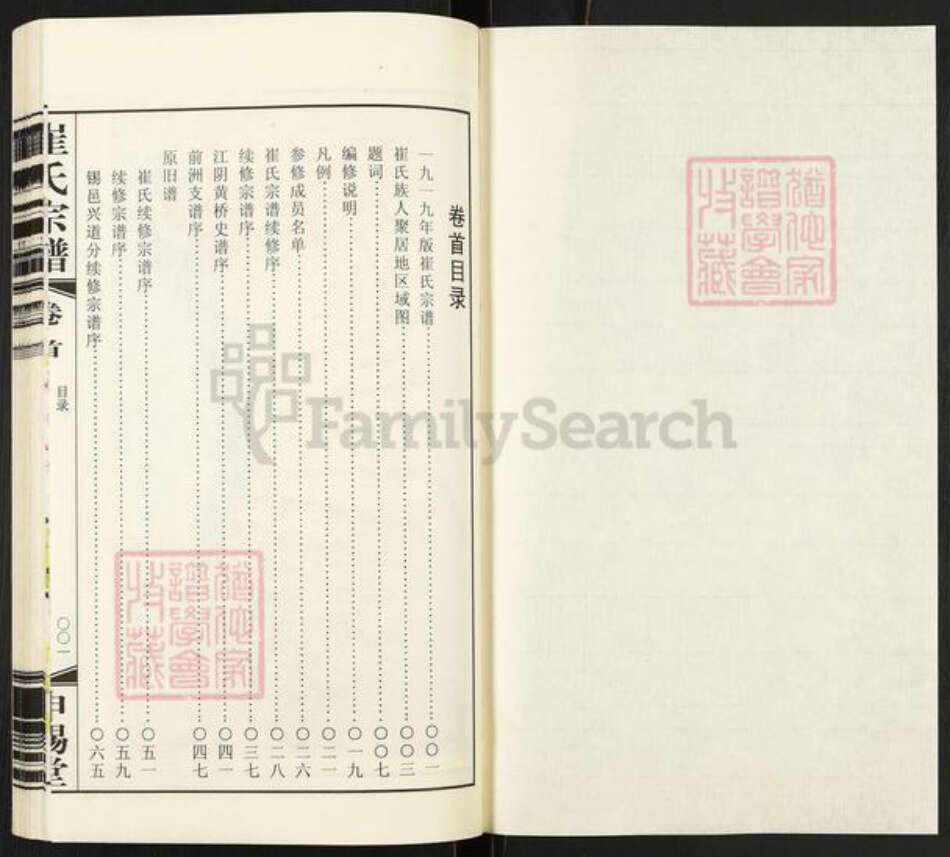 卷首目录
一九一九年版崔氏宗谱……〇〇一
崔氏族人聚居地区域图……〇〇三
题词……〇〇七
编修说明……〇一九
凡例……〇二一
参修成员名单……〇二六
崔氏宗谱续修序……〇二八
续修宗谱序……〇三七
江阴黄桥史谱序……〇四一
前洲支谱序……〇四七
原旧谱
崔氏续修宗谱序……〇五一
续修宗谱序……〇五九
锡邑兴道分续修宗谱序……〇六五
崔氏宗谱
卷首
目录
〇〇一
申锡堂
猶他家
譜學會
收藏
猶他家
譜學會
收藏
FamilySearch